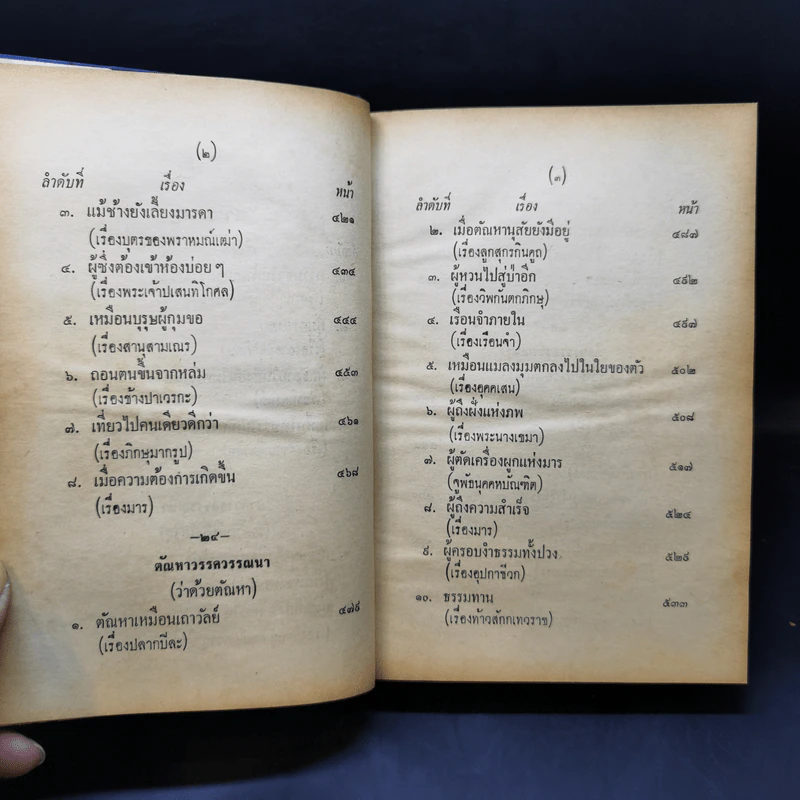 (๒)
ลำดับที่ เรื่อง หน้า
๓. แม้ช้างยังเลี้ยงมารดา ๔๒๑
(เรื่องบุตรของพราหมณ์เฒ่า)
๔. ผู้ซึ่งต้องเข้าห้องบ่อย ๆ ๔๓๔
(เรื่องพระเจ้าปเสนทิโกศล)
๕. เหมือนบุรุษผู้กุมขอ ๔๔๔
(เรื่องสานุสามเณร)
๖. ถอนตนขึ้นจากหล่ม ๔๕๓
(เรื่องช้างปาเวรกะ)
๗. เที่ยวไปคนเดียวดีกว่า ๔๖๑
(เรื่องภิกษุมากรูป)
๘. เมื่อความต้องการเกิดขึ้น ๔๖๘
(เรื่องมาร)
—๒๔—
ตัณหาวรรควรรณนา
(ว่าด้วยตัณหา)
๑. ตัณหาเหมือนเถาวัลย์ ๔๗๙
(เรื่องปลากปิละ)
(๓)
ลำดับที่ เรื่อง หน้า
๒. เมื่อตัณหานุสัยยังมีอยู่ ๔๘๗
(เรื่องลูกสุกรกินคูถ)
๓. ผู้หวนไปสู่ป่าอีก ๔๙๒
(เรื่องวิพภันตกภิกษุ)
๔. เรือนจำภายใน ๔๙๗
(เรื่องเรือนจำ)
๕. เหมือนแมลงมุมตกลงไปในใยของตัว ๕๐๒
(เรื่องอุคคเสน)
๖. ผู้ถึงฝั่งแห่งภพ ๕๐๘
(เรื่องพระนางเขมา)
๗. ผู้ตัดเครื่องผูกแห่งมาร ๕๑๗
(จูฬธนุคคหบัณฑิต)
๘. ผู้ถึงความสำเร็จ ๕๒๔
(เรื่องมาร)
๙. ผู้ครอบงำธรรมทั้งปวง ๕๒๙
(เรื่องอุปกาชีวก)
๑๐. ธรรมทาน ๕๓๓
(เรื่องท้าวสักกเทวราช)